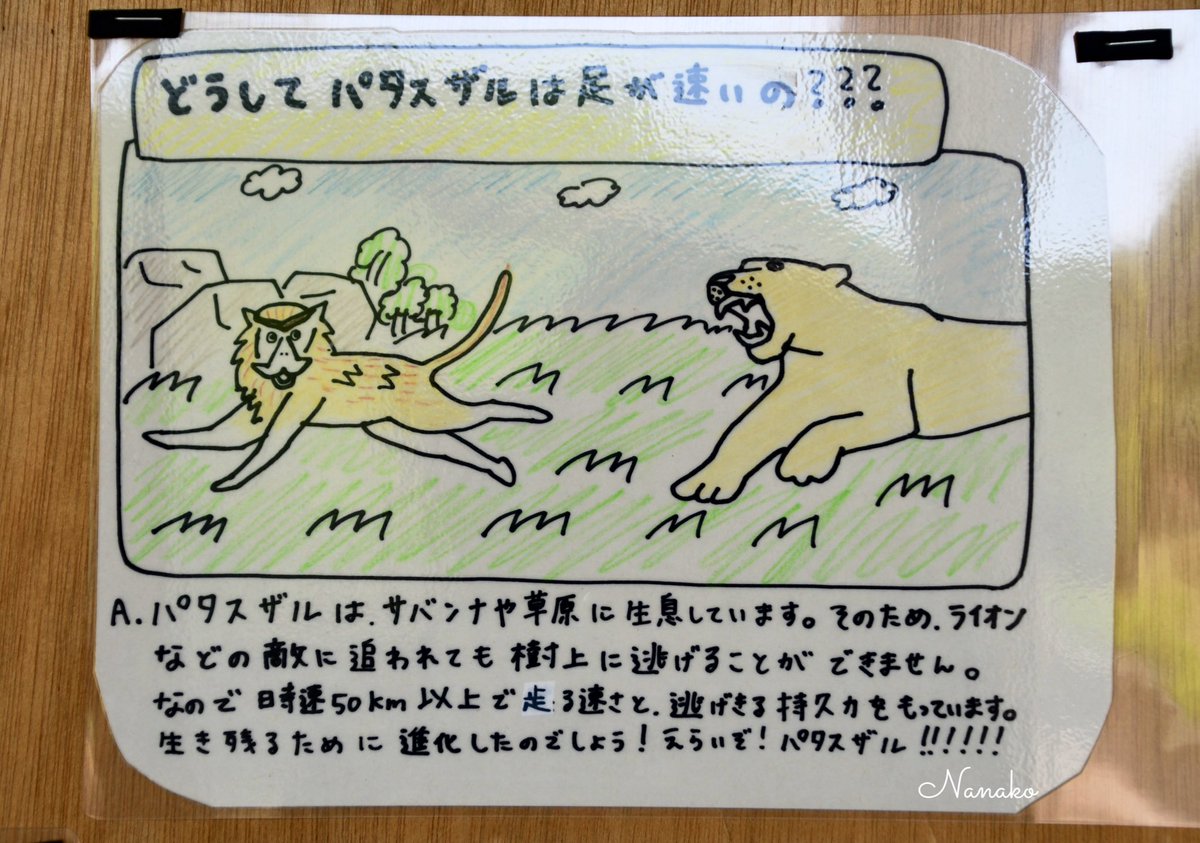 どうしてパタスザルは足が速いの???
A.パタスザルは、サバンナや草原に生息しています。そのため、ライオン
などの敵に追われても樹上に逃げることができません。
なので時速50km以上で走る速さと、逃げきる持久力をもっています。
生き残るために進化したのでしょう!えらいぞ!パタスザル!!!!!!
Nanako